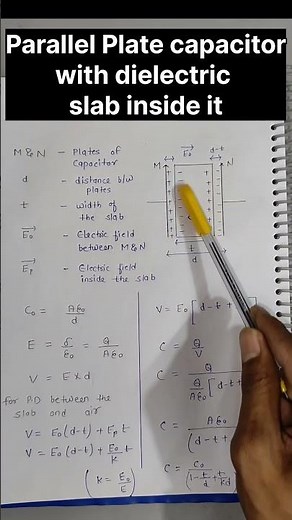 Parallel Plate capacitor
with dielectric
slab inside it
M & N - Plates of
Capacitor
d - distance b/w
plates
t - width of
the slab
E₀ - Electric field
between M & N
Eₚ - Electric field
inside the slab
E₀
d-t
M
N
t
d
C₀ = Aε₀/d
E = σ/ε₀ = Q/Aε₀
V = E × d
for PD between the
slab and air
V = E₀(d-t) + Eₚt
V = E₀(d-t) + E₀/K t
(K = E₀/E)
V = E₀[d-t +
C = Q/V
C = Q / Q/Aε₀[d-t+
C = Aε₀/(d-t+
C = C₀/(1-t/d+t/